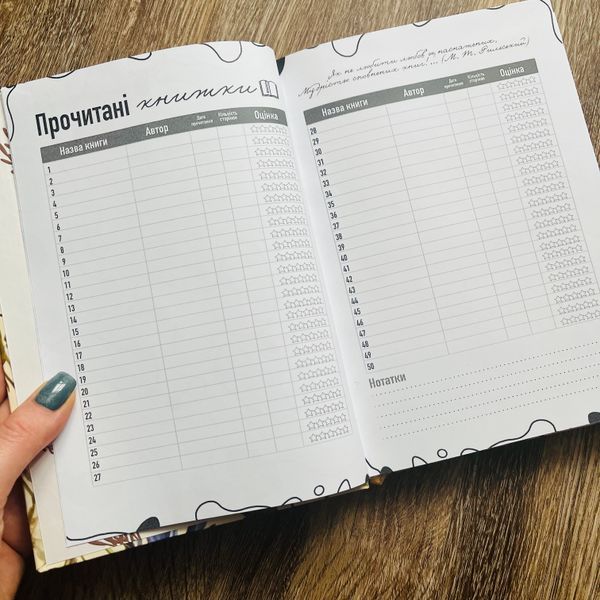 Прочитані книжки
Назва книги Автор Дата прочитання Кількість сторінок Оцінка
1
2
3
4
5
6
7
8
9
10
11
12
13
14
15
16
17
18
19
20
21
22
23
24
25
26
27
Як не любити любов'ю
Мудрістю сповнених книг!... (М. Т. Рильський)
Назва книги Автор Дата прочитання Кількість сторінок Оцінка
28
29
30
31
32
33
34
35
36
37
38
39
40
41
42
43
44
45
46
47
48
49
50
Нотатки